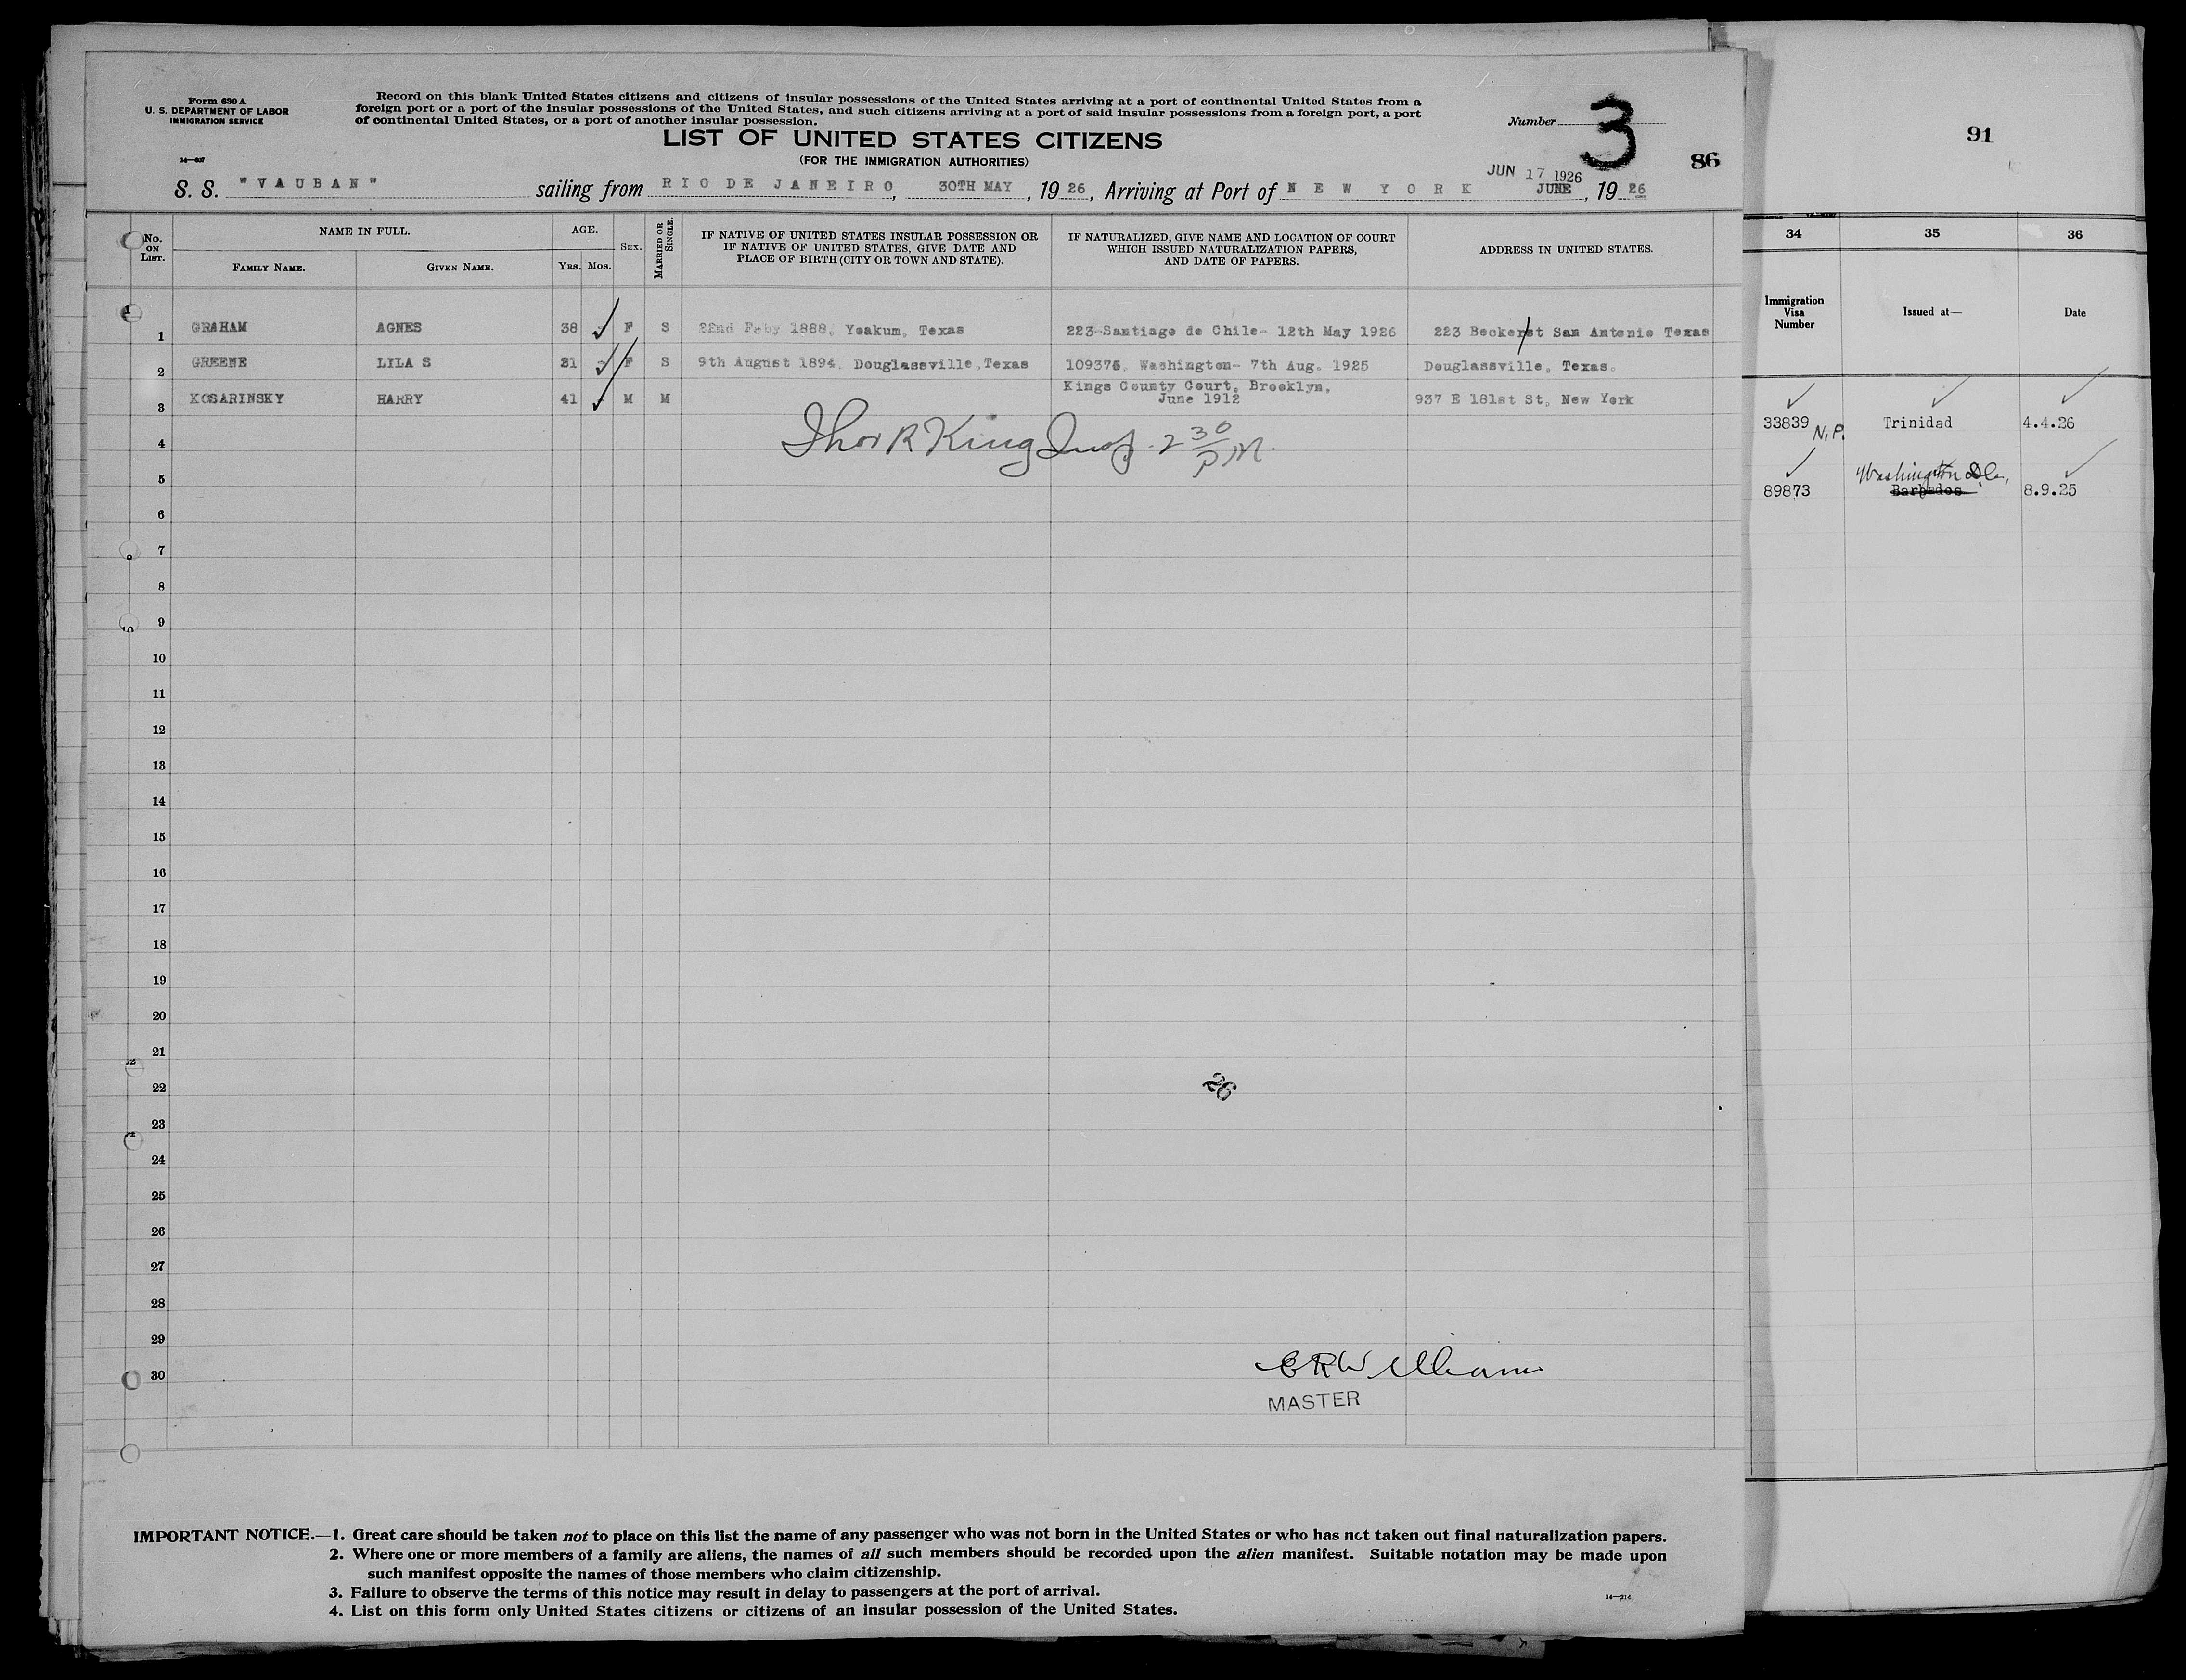 Form 630 A
U. S. DEPARTMENT OF LABOR
IMMIGRATION SERVICE
14—407
Record on this blank United States citizens and citizens of insular possessions of the United States arriving at a port of continental United States from a
foreign port or a port of the insular possessions of the United States, and such citizens arriving at a port of said insular possessions from a foreign port, a port
of continental United States, or a port of another insular possession.
LIST OF UNITED STATES CITIZENS
(FOR THE IMMIGRATION AUTHORITIES)
Number 3
86
JUN 17 1926
S. S. "VAUBAN" sailing from RIO DE JANEIRO, 30TH MAY, 19 26, Arriving at Port of NEW YORK JUNE, 19 26
No. ON LIST.
NAME IN FULL.
FAMILY NAME.
GIVEN NAME.
AGE.
YRS. MOS.
SEX.
MARRIED OR SINGLE.
IF NATIVE OF UNITED STATES INSULAR POSSESSION OR
IF NATIVE OF UNITED STATES, GIVE DATE AND
PLACE OF BIRTH (CITY OR TOWN AND STATE).
IF NATURALIZED, GIVE NAME AND LOCATION OF COURT
WHICH ISSUED NATURALIZATION PAPERS,
AND DATE OF PAPERS.
ADDRESS IN UNITED STATES.
1 GRAHAM AGNES 38 - F S 22nd Feby 1888, Yoakum, Texas 223-Santiago de Chile- 12th May 1926 223 Beckerst San Antonio Texas
2 GREENE LYLA S 31 - F S 9th August 1894, Douglassville, Texas 109376, Washington- 7th Aug. 1925 Douglassville, Texas.
3 KOSARINSKY HARRY 41 - M M Kings County Court, Brooklyn,
June 1912 937 E 181st St, New York
4 Thos R King Insp. 2 30 P.M.
5
6
7
8
9
10
11
12
13
14
15
16
17
18
19
20
21
22
26
23
24
25
26
27
28
29
30
E R Williams
MASTER
IMPORTANT NOTICE.—1. Great care should be taken not to place on this list the name of any passenger who was not born in the United States or who has not taken out final naturalization papers.
2. Where one or more members of a family are aliens, the names of all such members should be recorded upon the alien manifest. Suitable notation may be made upon
such manifest opposite the names of those members who claim citizenship.
3. Failure to observe the terms of this notice may result in delay to passengers at the port of arrival.
4. List on this form only United States citizens or citizens of an insular possession of the United States.
14—214
91
34 35 36
Immigration
Visa
Number
Issued at—
Date
33839 N.P. Trinidad 4.4.26
Washington D.C.,
89873 Barbados 8.9.25